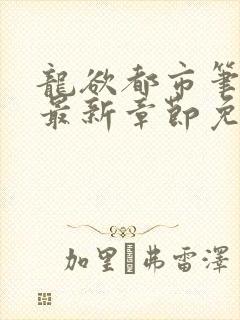 龍欲都市筆
最新章節免
加里·弗雷澤